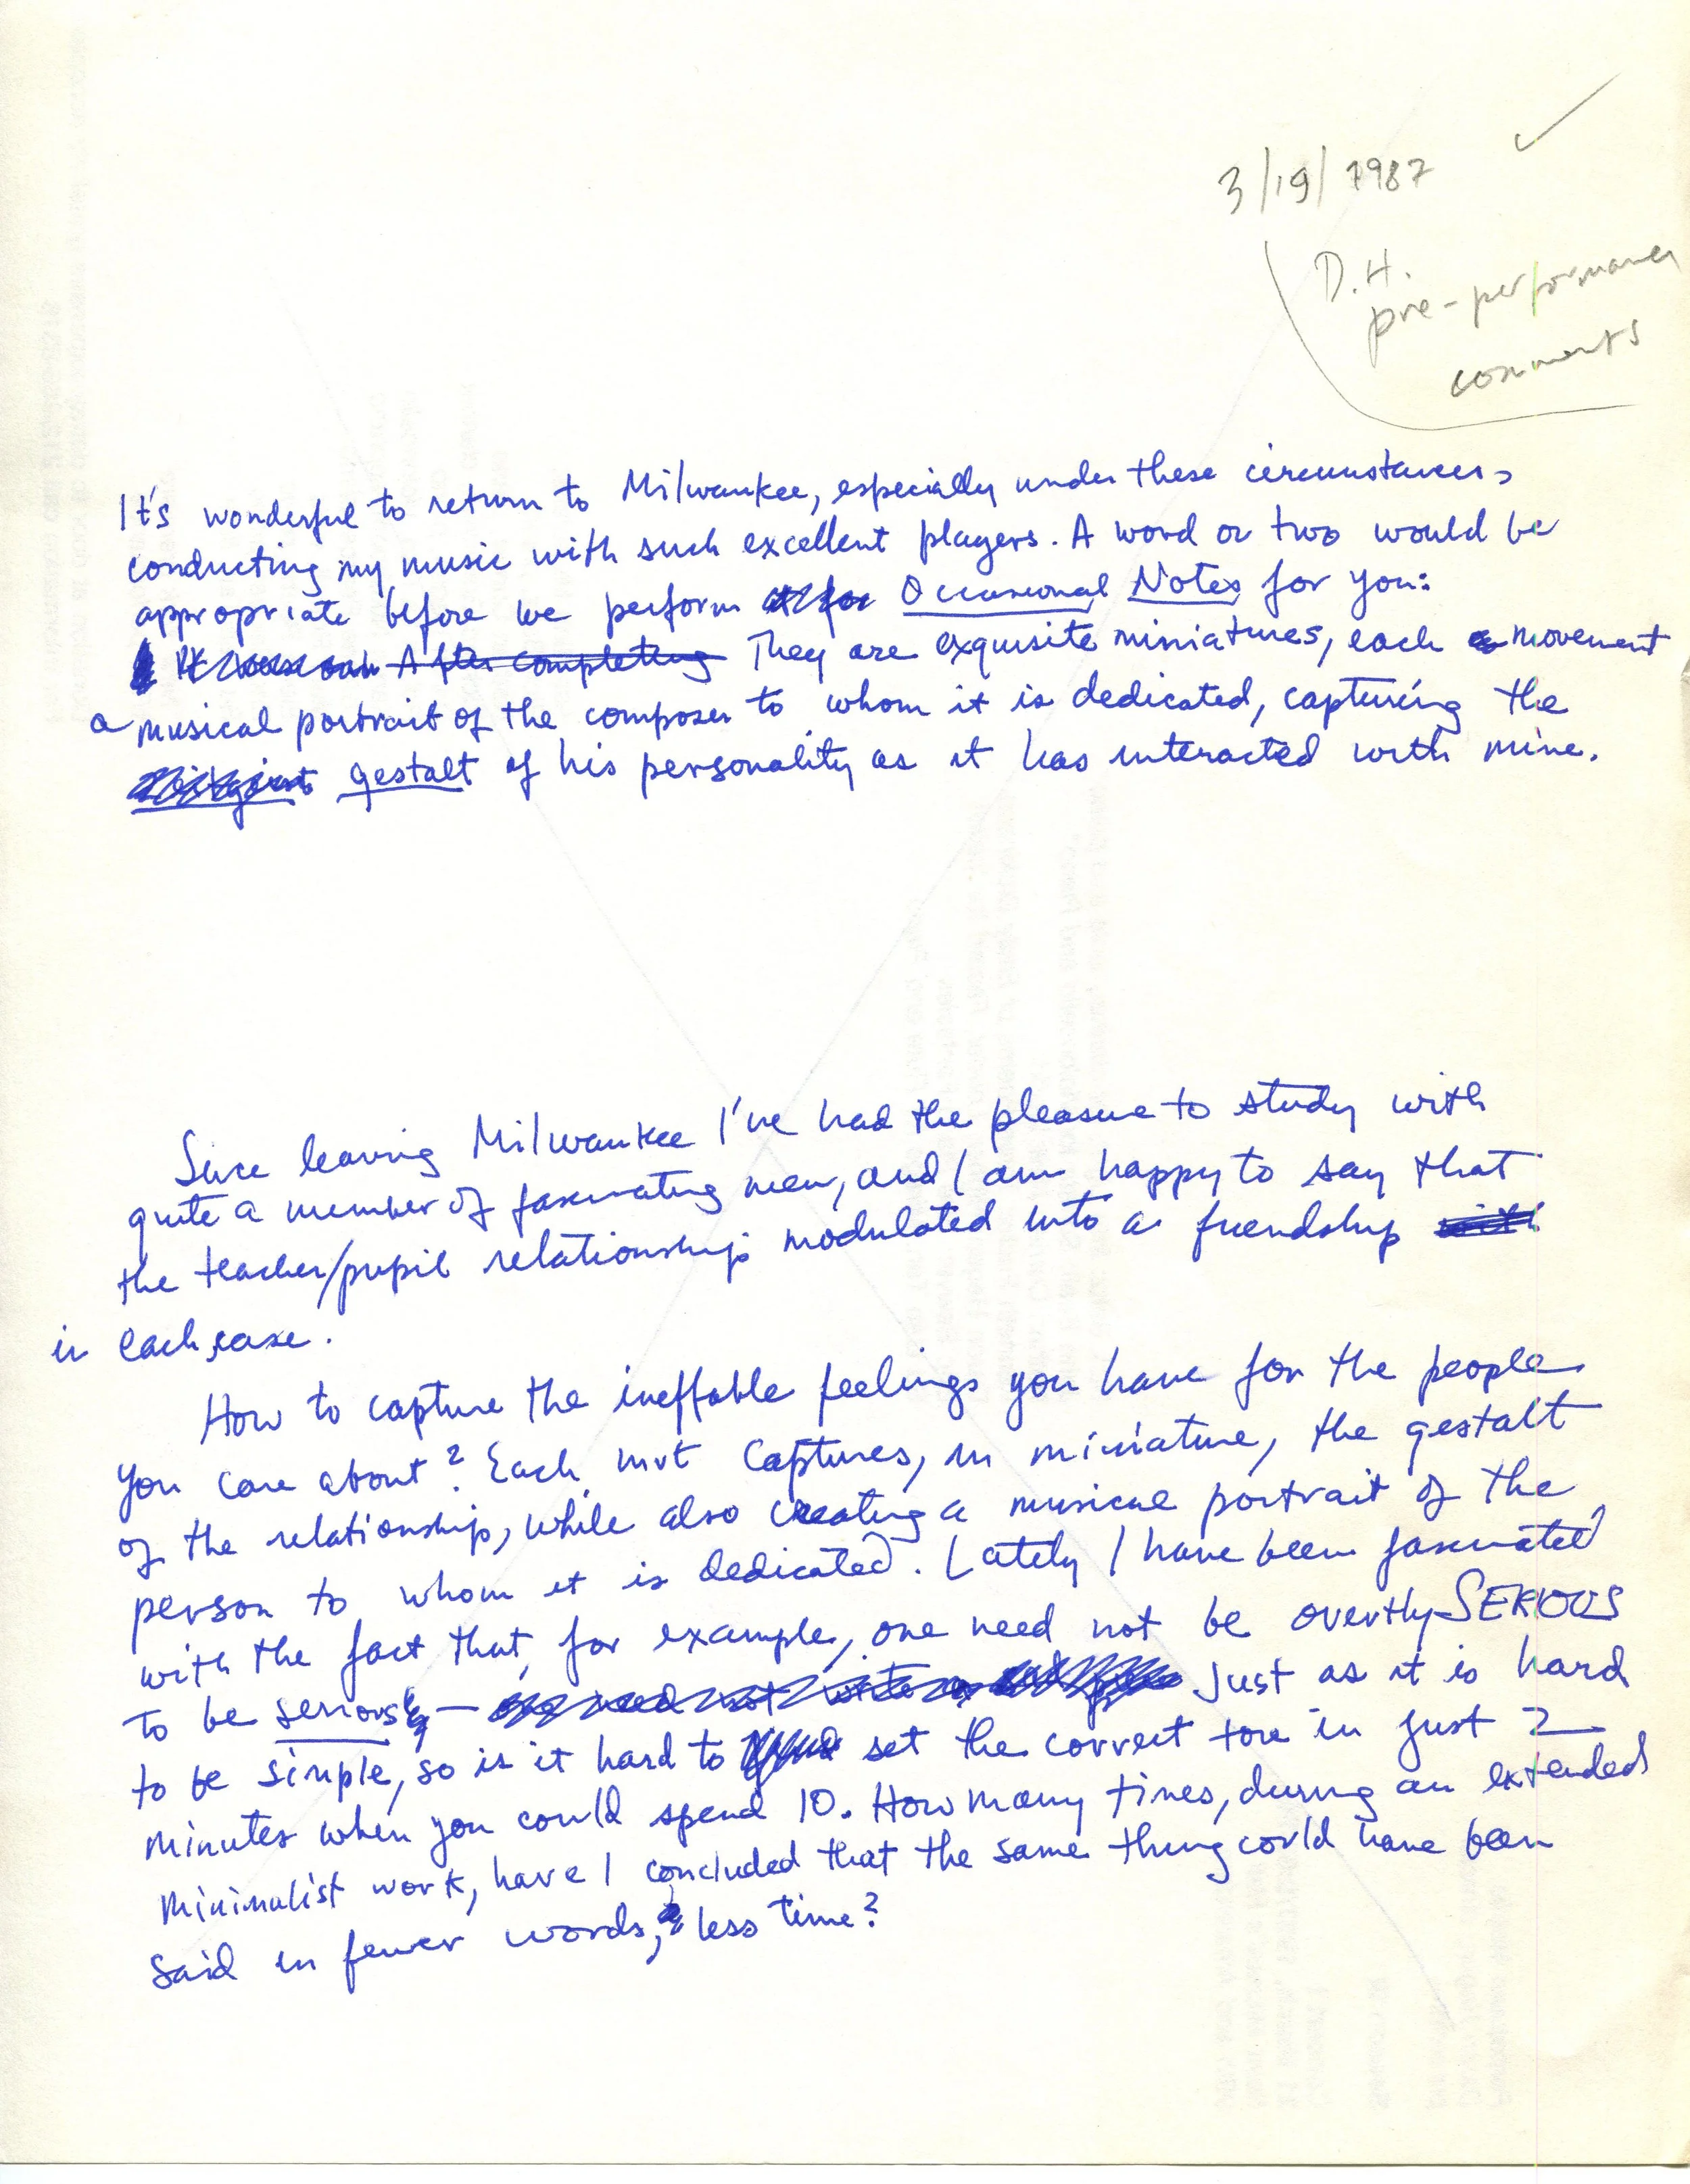 3/19/1987
D.H.
pre-performance
comments
It's wonderful to return to Milwaukee, especially under these circumstances,
conducting my music with such excellent players. A word or two would be
appropriate before we perform Occasional Notes for you:
After completing They are exquisite miniatures, each movement
a musical portrait of the composer to whom it is dedicated, capturing the
gestalt of his personality as it has interacted with mine.
Since leaving Milwaukee I've had the pleasure to study with
quite a number of fascinating men, and I am happy to say that
the teacher/pupil relationship modulated into a friendship
in each case.
How to capture the ineffable feelings you have for the people
you care about? Each mvt captures, in miniature, the gestalt
of the relationship, while also creating a musical portrait of the
person to whom it is dedicated. Lately I have been fascinated
with the fact that, for example, one need not be overtly SERIOUS
to be serious — Just as it is hard
to be simple, so is it hard to set the correct tone in just 2
minutes when you could spend 10. How many times, during an extended
minimalist work, have I concluded that the same thing could have been
said in fewer words, less time?